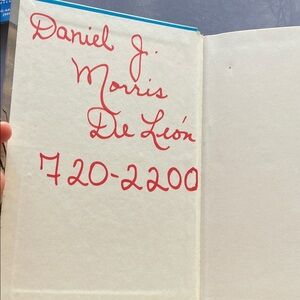 Daniel J.
Morris
De León
720-2200